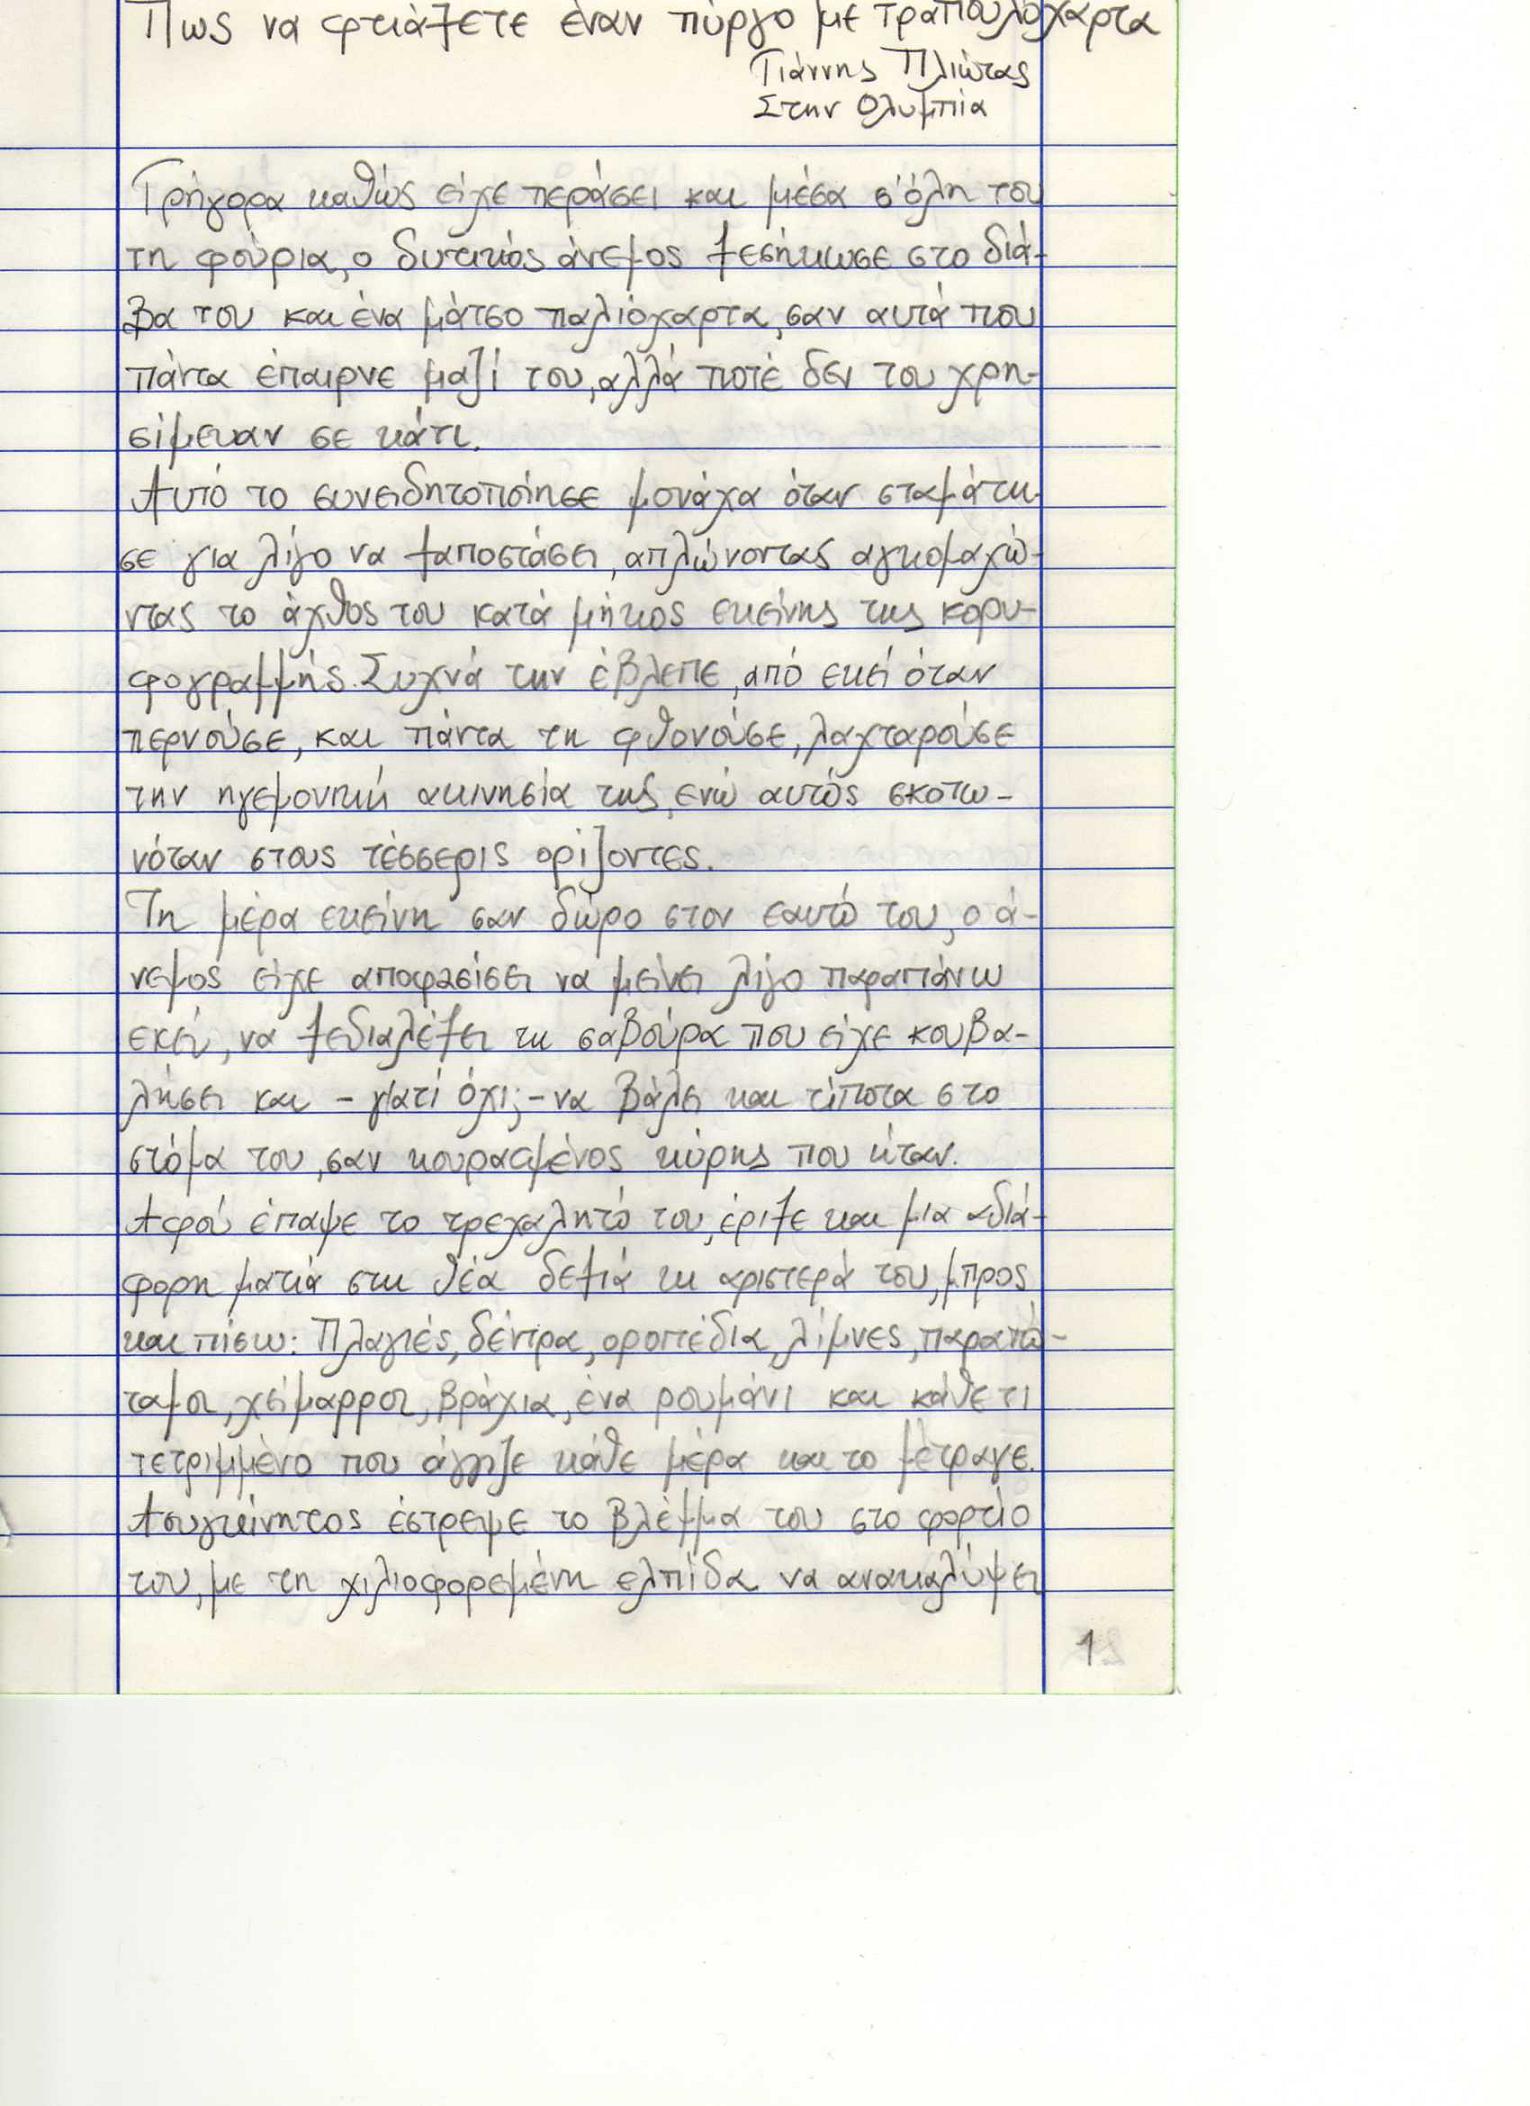 Πως να φτιάξετε έναν πύργο με τραπουλόχαρτα
Γιάννης Πλιώτας
Στην Ολυμπία
Γρήγορα καθώς είχε περάσει και μέσα σ'όλη του
τη φούρια, ο δυτικός άνεμος ξεσήκωσε στο διά-
βα του και ένα μάτσο παλιόχαρτα, σαν αυτά που
πάντα έπαιρνε μαζί του, αλλά ποτέ δεν του χρη-
σίμευαν σε κάτι.
Αυτό το συνειδητοποίησε μονάχα όταν σταμάτη-
σε για λίγο να ξαποστάσει, απλώνοντας αγκομαχώ-
ντας το άχθος του κατά μήκος εκείνης της κορυ-
φογραμμής. Συχνά την έβλεπε, από εκεί όταν
περνούσε, και πάντα τη φθονούσε, λαχταρούσε
την ηγεμονική ακινησία της, ενώ αυτός σκοτω-
νόταν στους τέσσερις ορίζοντες.
Τη μέρα εκείνη σαν δώρο στον εαυτό του, ο ά-
νεμος είχε αποφασίσει να μείνει λίγο παραπάνω
εκεί, να ξεδιαλέξει τη σαβούρα που είχε κουβα-
λήσει και - γιατί όχι; - να βάλει και τίποτα στο
στόμα του, σαν κουρασμένος κύρης που ήταν.
Αφού έπαψε το τρεχαλητό του, έριξε και μια αδιά-
φορη ματιά στη θέα δεξιά τη αριστερά του, μπρος
και πίσω: Πλαγιές, δέντρα, οροπέδια, λίμνες, παραπό-
ταμοι, χείμαρροι, βράχια, ένα ρουμάνι και κάθε τι
τετριμμένο που άγγιζε κάθε μέρα και το μέτραγε.
Ασυγκίνητος έστρεψε το βλέμμα του στο φορτίο
του, με τη χιλιοφορεμένη ελπίδα να ανακαλύψει
1